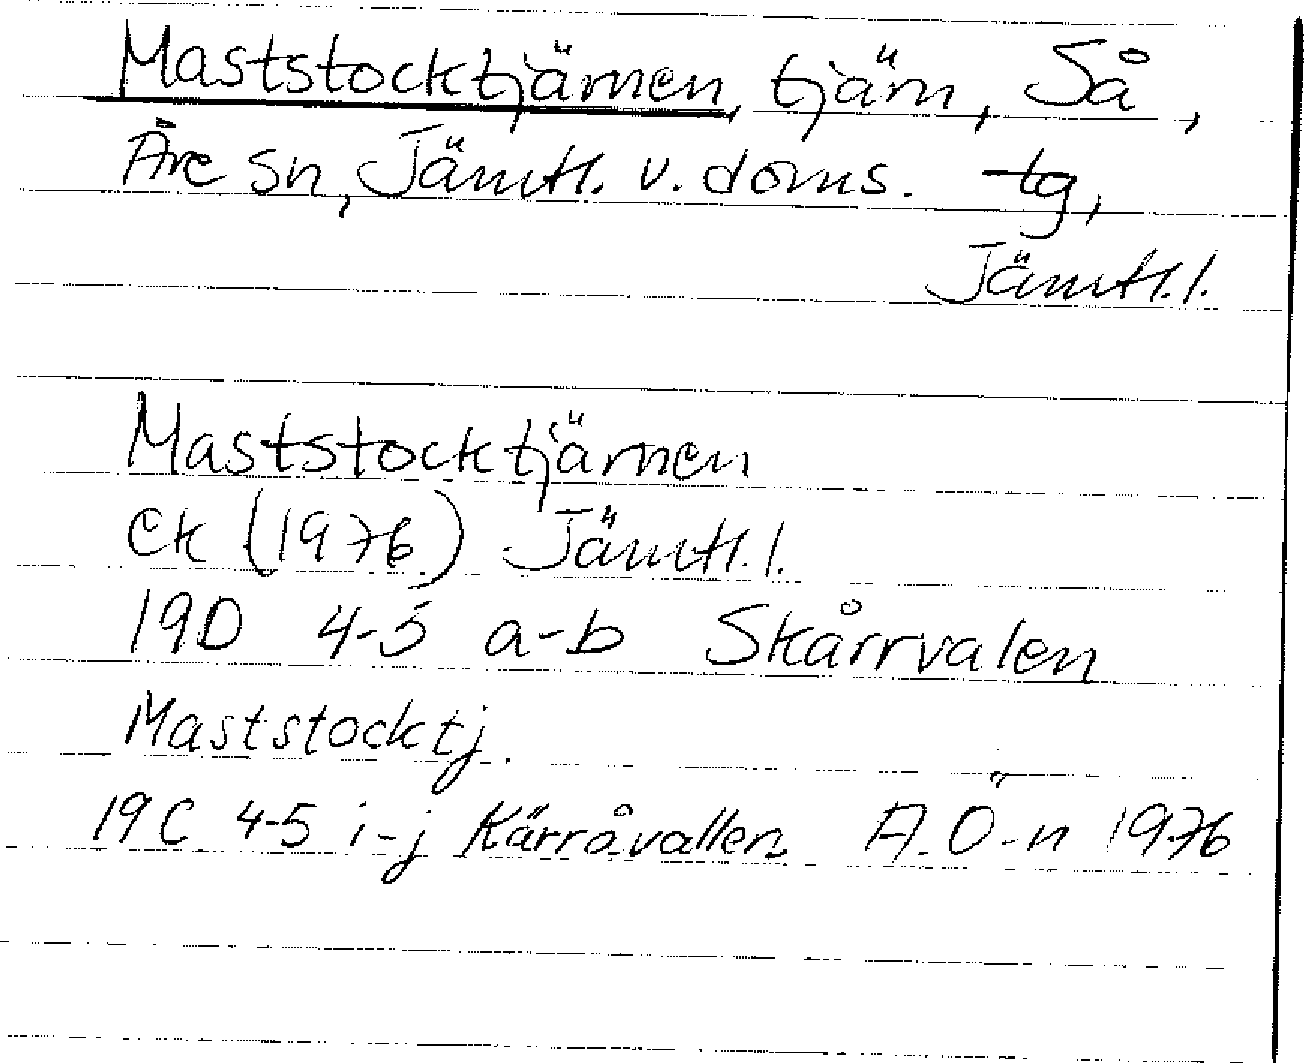 Maststocktjärnen, tjärn, Så,
Åre sn, Jämtl. v. doms. tg,
Jämtl. l.
Maststocktjärnen
ek (1976) Jämtl. l.
19D 4-5 a-b Skårrvalen
Maststocktj.
19C 4-5 i-j Kärråvallen A. Ö-n 1976